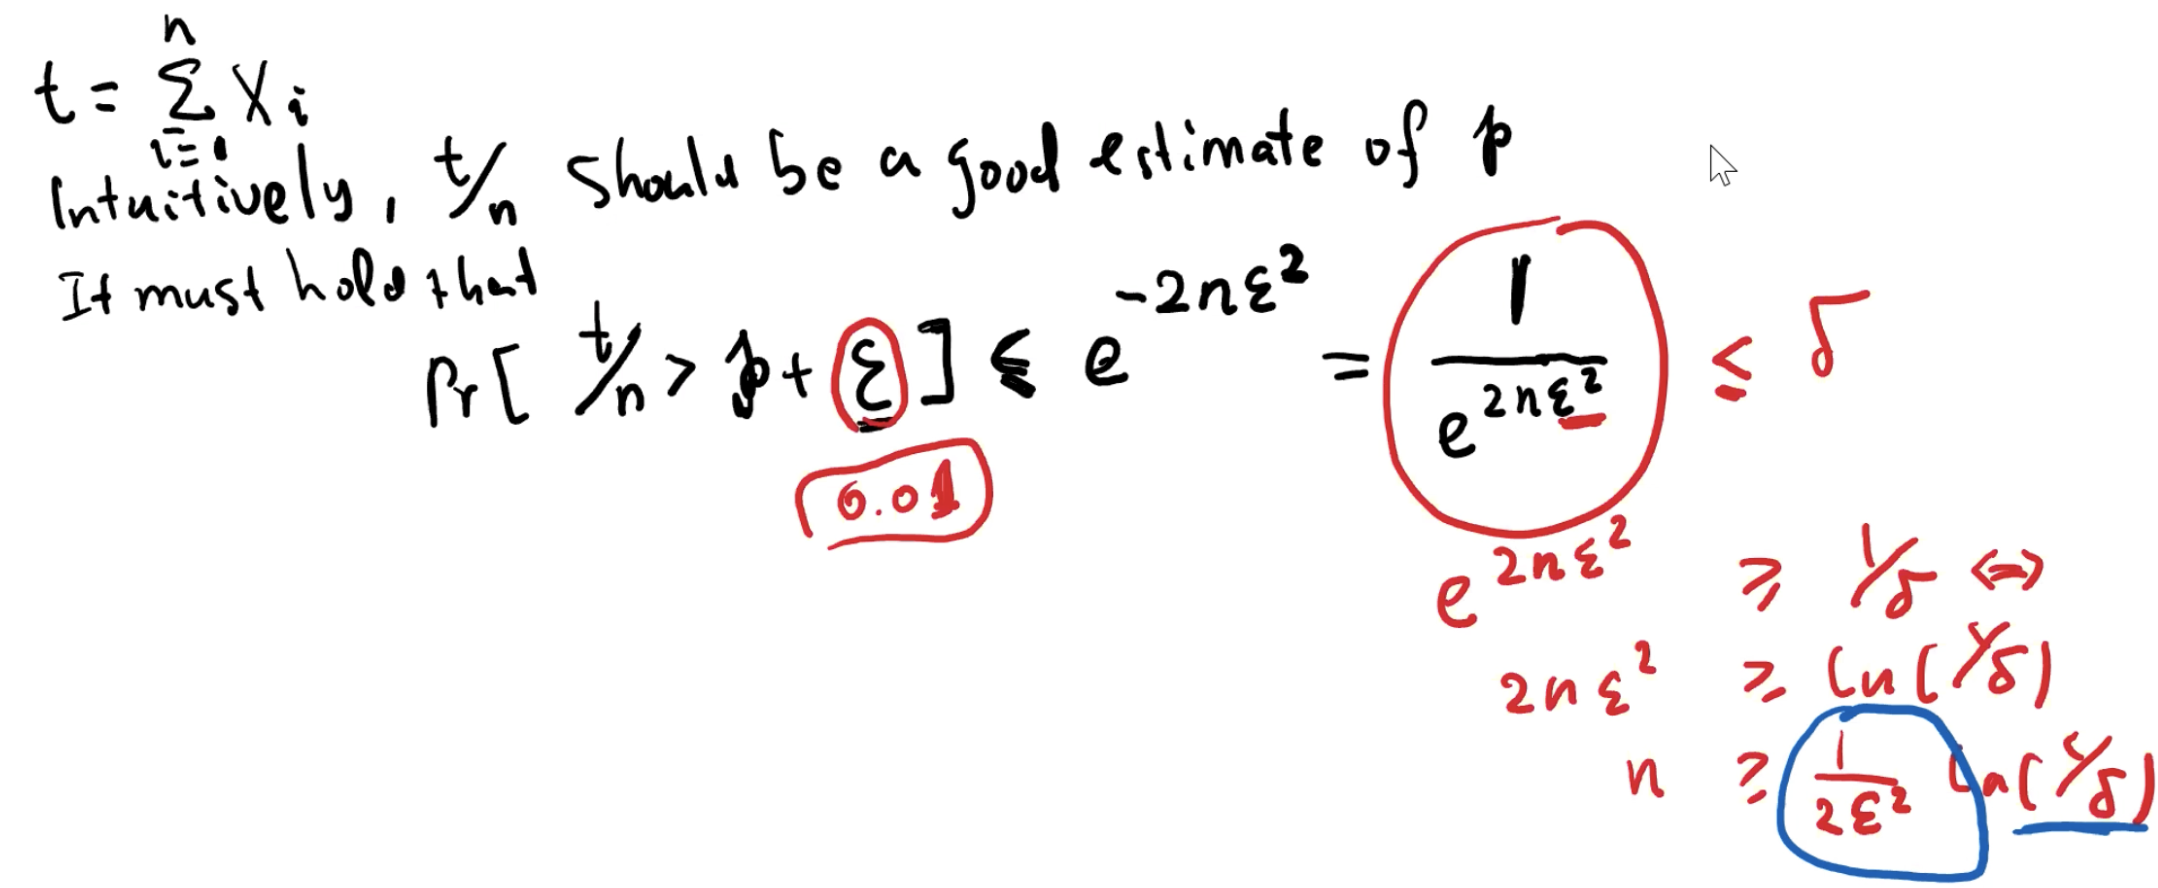 t = Σ_{i=1}^{n} X_i
Intuitively, t/n should be a good estimate of p
It must hold that
Pr[ t/n > p + ε ] ≤ e^{-2nε²} = 1/e^{2nε²} ≤ δ
0.01
e^{2nε²} ≥ 1/δ ⇔
2nε² ≥ ln(1/δ)
n ≥ 1/2ε² ln(1/δ)